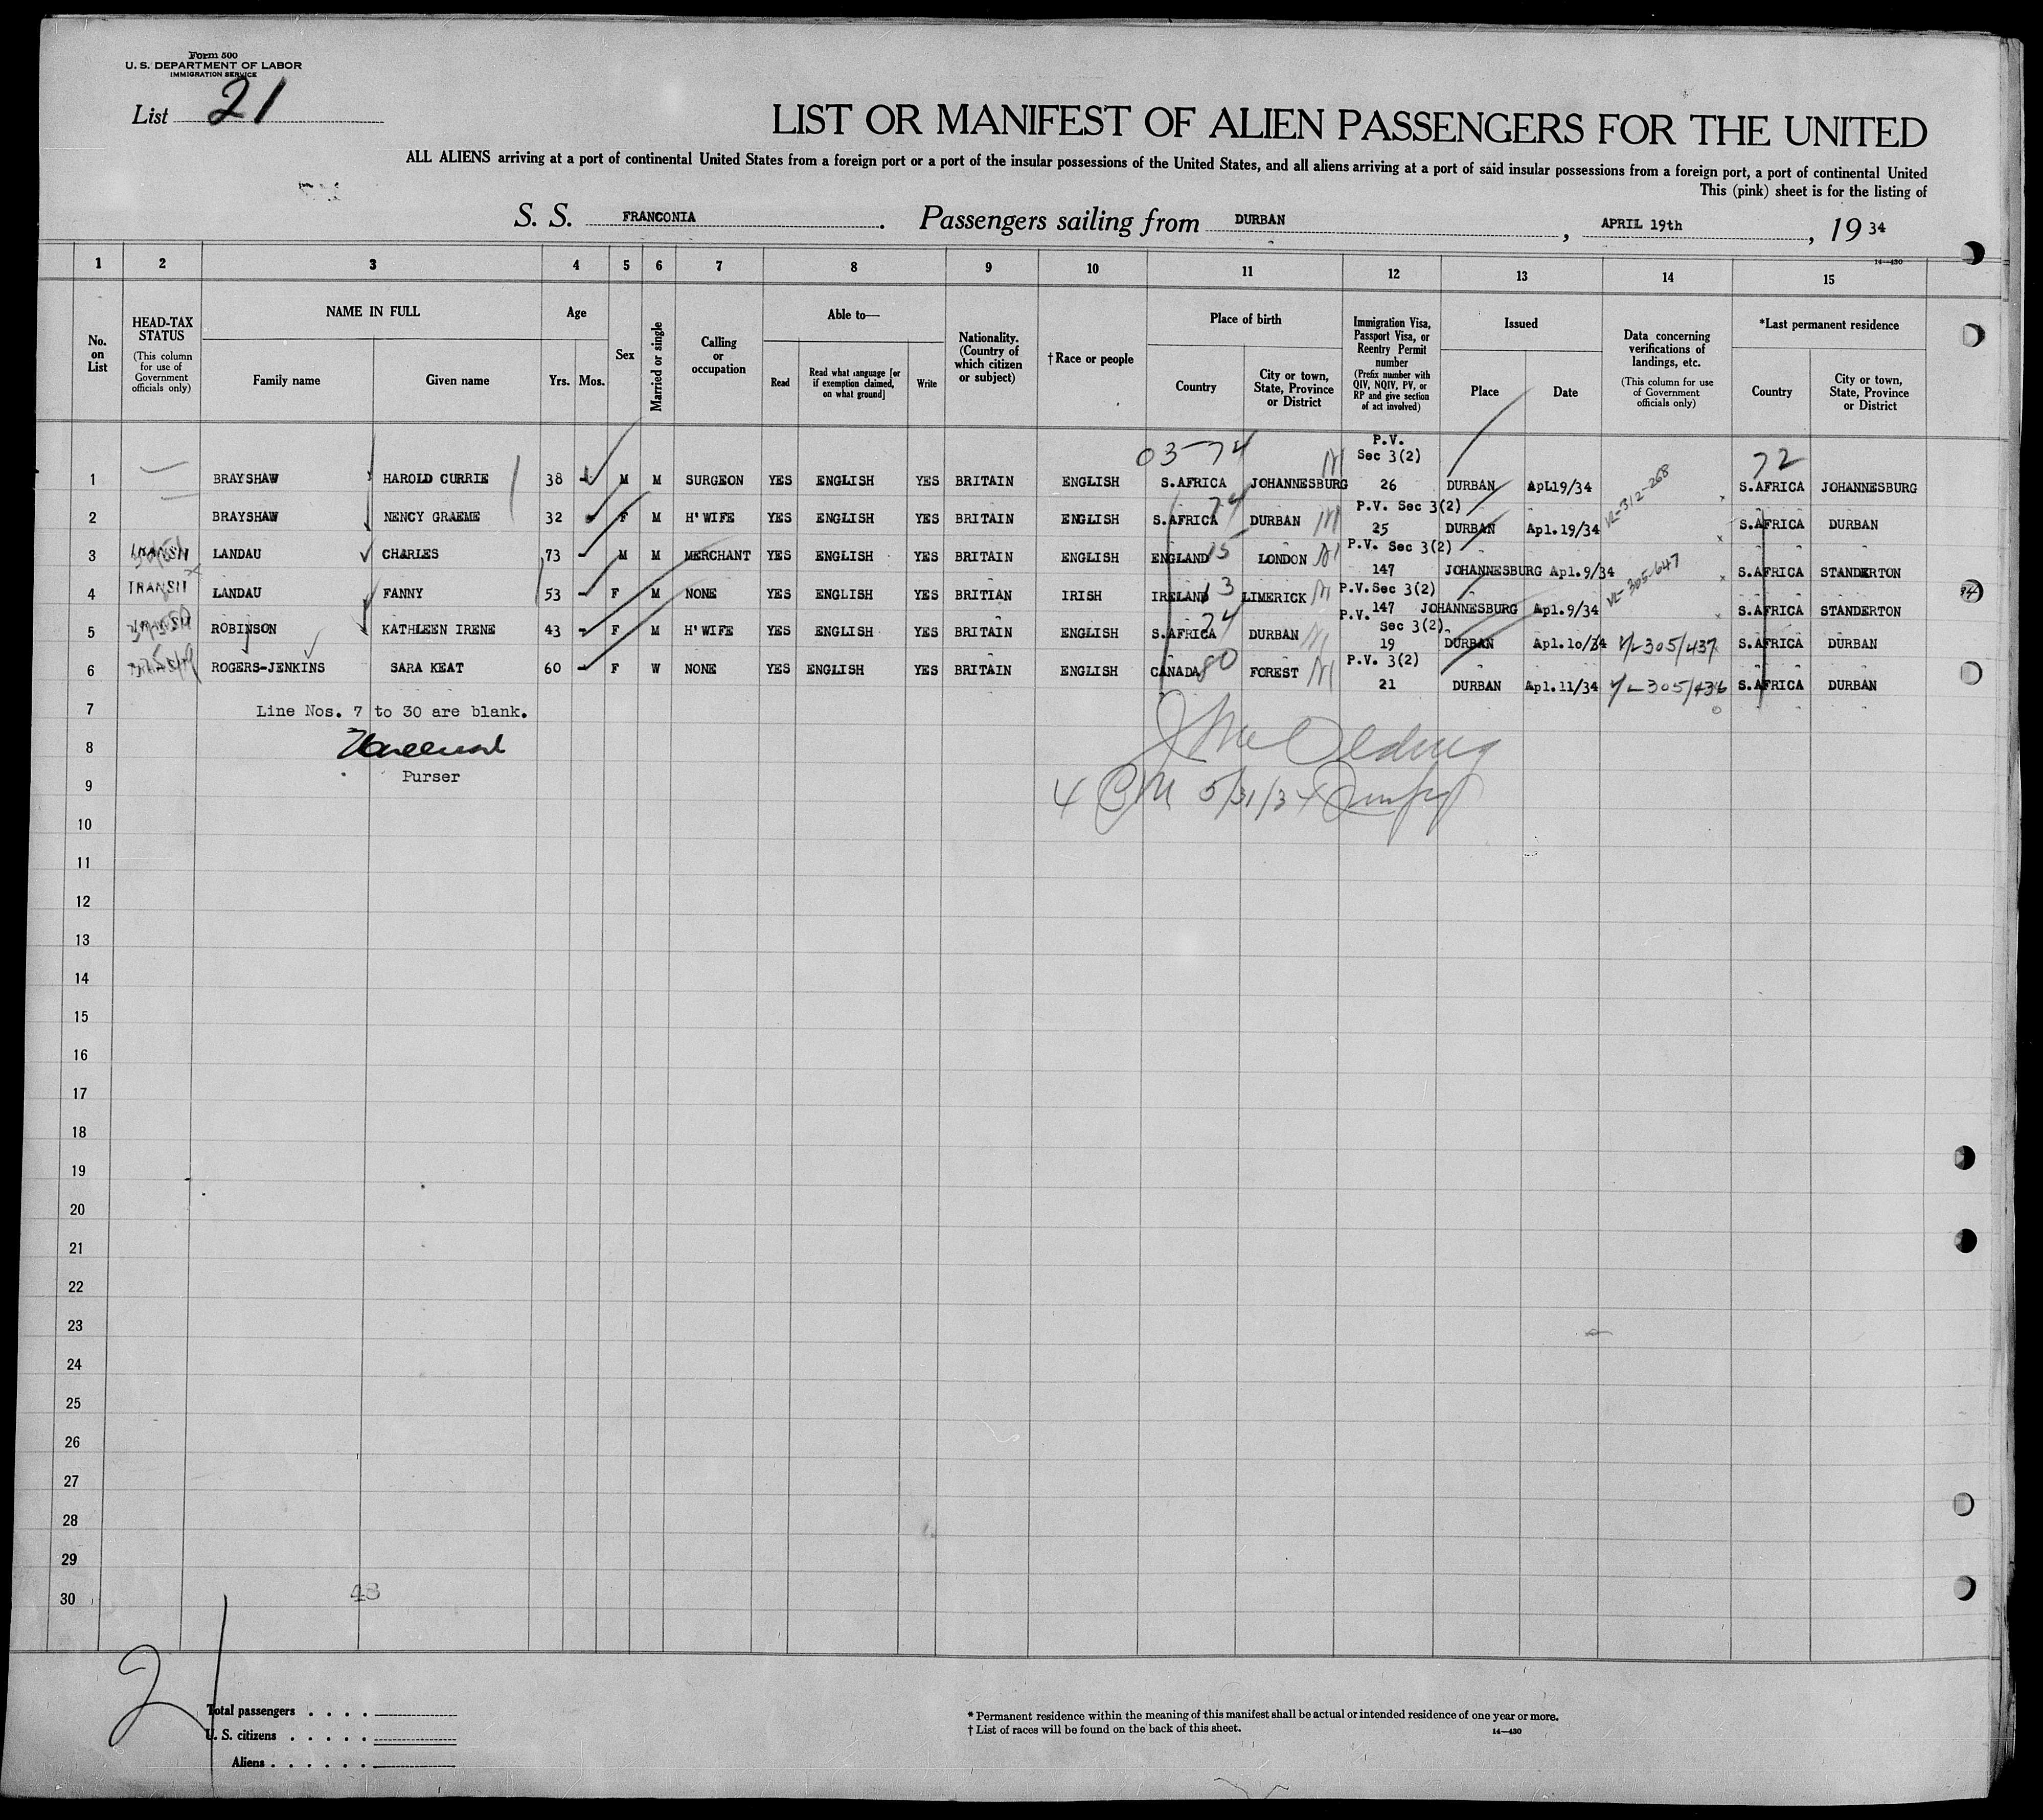 Form 500
U. S. DEPARTMENT OF LABOR
IMMIGRATION SERVICE
List 21
LIST OR MANIFEST OF ALIEN PASSENGERS FOR THE UNITED
ALL ALIENS arriving at a port of continental United States from a foreign port or a port of the insular possessions of the United States, and all aliens arriving at a port of said insular possessions from a foreign port, a port of continental United
This (pink) sheet is for the listing of
S. S. FRANCONIA. Passengers sailing from DURBAN, APRIL 19th, 19 34
14—430
1 2 3 4 5 6 7 8 9 10 11 12 13 14 15
No. on List
HEAD-TAX STATUS
(This column for use of Government officials only)
NAME IN FULL
Family name Given name
Age
Yrs. Mos.
Sex
Married or single
Calling or occupation
Able to—
Read
Read what language [or if exemption claimed, on what ground]
Write
Nationality. (Country of which citizen or subject)
†Race or people
Place of birth
Country
City or town, State, Province or District
Immigration Visa, Passport Visa, or Reentry Permit number
(Prefix number with QIV, NQIV, PV, or RP and give section of act involved)
Issued
Place Date
Data concerning verifications of landings, etc.
(This column for use of Government officials only)
*Last permanent residence
Country
City or town, State, Province or District
03-74 P.V. Sec 3(2) 72
1 BRAYSHAW HAROLD CURRIE 38 M M SURGEON YES ENGLISH YES BRITAIN ENGLISH S.AFRICA JOHANNESBURG 26 DURBAN ApL19/34 S.AFRICA JOHANNESBURG
74 P.V. Sec 3(2) VL-312-268
2 BRAYSHAW NENCY GRAEME 32 F M H'WIFE YES ENGLISH YES BRITAIN ENGLISH S.AFRICA DURBAN 25 DURBAN Apl.19/34 S.AFRICA DURBAN
P.V. Sec 3(2)
3 LANDAU CHARLES 73 M M MERCHANT YES ENGLISH YES BRITAIN ENGLISH ENGLAND 15 LONDON 147 JOHANNESBURG Apl.9/34 S.AFRICA STANDERTON
P.V.Sec 3(2) VL-305-647
4 TRANSIT LANDAU FANNY 53 F M NONE YES ENGLISH YES BRITIAN IRISH IRELAND 13 LIMERICK 147 JOHANNESBURG Apl.9/34 S.AFRICA STANDERTON
74 P.V. Sec 3(2)
5 ROBINSON KATHLEEN IRENE 43 F M H'WIFE YES ENGLISH YES BRITAIN ENGLISH S.AFRICA DURBAN 19 DURBAN Apl.10/34 V/L 305/437 S.AFRICA DURBAN
P.V. 3(2)
6 ROGERS-JENKINS SARA KEAT 60 F W NONE YES ENGLISH YES BRITAIN ENGLISH CANADA 80 FOREST 21 DURBAN Apl.11/34 V/L 305/436 S.AFRICA DURBAN
7 Line Nos. 7 to 30 are blank.
8
Purser
9 5/31/34
10
11
12
13
14
15
16
17
18
19
20
21
22
23
24
25
26
27
28
29
30
48
21
Total passengers . . . .
U. S. citizens . . . . .
Aliens . . . . . .
* Permanent residence within the meaning of this manifest shall be actual or intended residence of one year or more.
† List of races will be found on the back of this sheet.
14—430